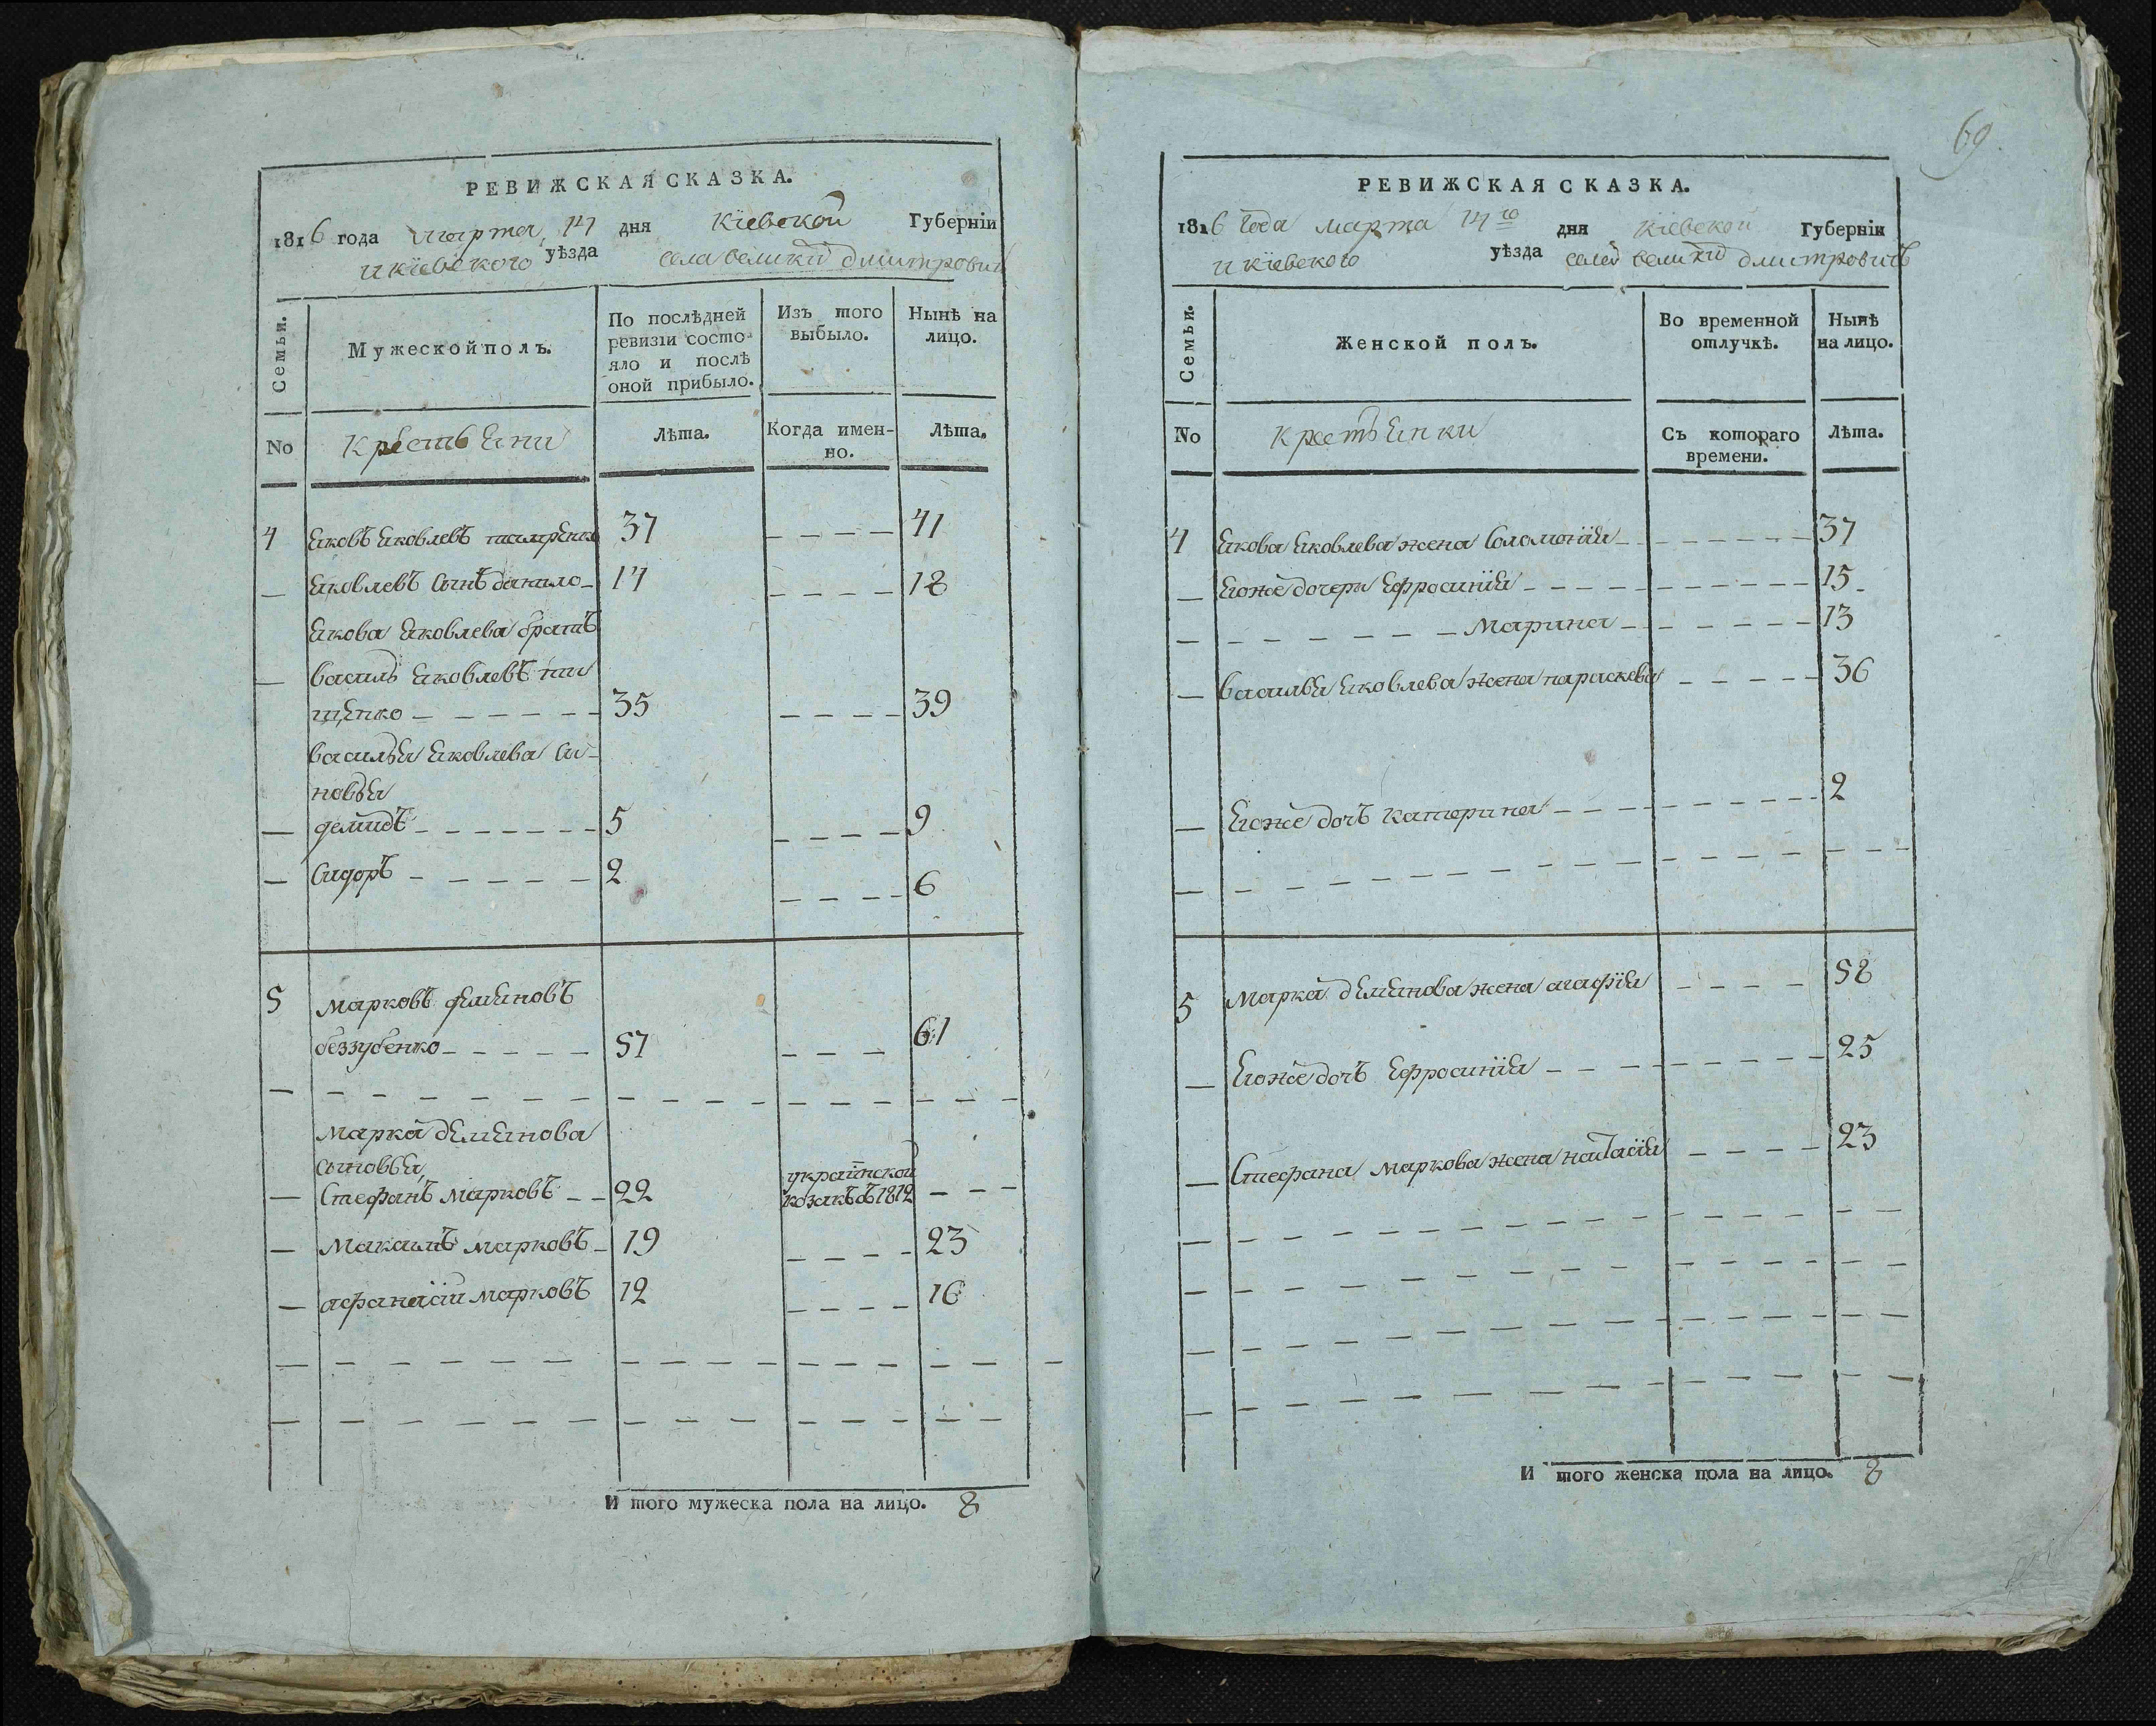 РЕВИЖСКАЯ СКАЗКА.
1816 года марта 14 дня Кіевской Губерніи
и кіевского уѣзда села велики дмитровичь
Семьи.
Мужеской полъ.
По послѣдней ревизіи состояло и послѣ оной прибыло.
Изъ того выбыло.
Нынѣ на лицо.
No
крестьяни
Лѣта.
Когда именно.
Лѣта.
4 Яковъ Яковлевъ 37 41
Яковлевъ сынъ данило 14 18
Якова Яковлева братъ
василь Яковлевъ
35 39
василья Яковлева си-
новья
демидъ 5 9
Сидоръ 2 6
5 марковъ демяновъ
беззубенко 57 61
марка демянова
сыновья
Стефанъ марковъ 22 украинской
козакъ въ 1812
Максимъ марковъ 19 23
афанасій марковъ 12 16
И того мужеска пола на лицо. 8
69.
РЕВИЖСКАЯ СКАЗКА.
1816 года марта 14го дня кіевской Губерніи
и кіевского уѣзда села велики дмитровичъ
Семьи.
Женской полъ.
Во временной отлучкѣ.
Нынѣ на лицо.
No
крестьянки
Съ котораго времени.
Лѣта.
4 Якова Яковлева жена Соломонія 37
Егоже дочери Ефросинія 15
Марина 13
василья Яковлева жена параскева 36
Егоже дочъ катерина 2
5 Марка демянова жена агафія 58
Егоже дочъ Ефросинія 25
Стефана маркова жена настасія 23
И того женска пола на лицо. 8